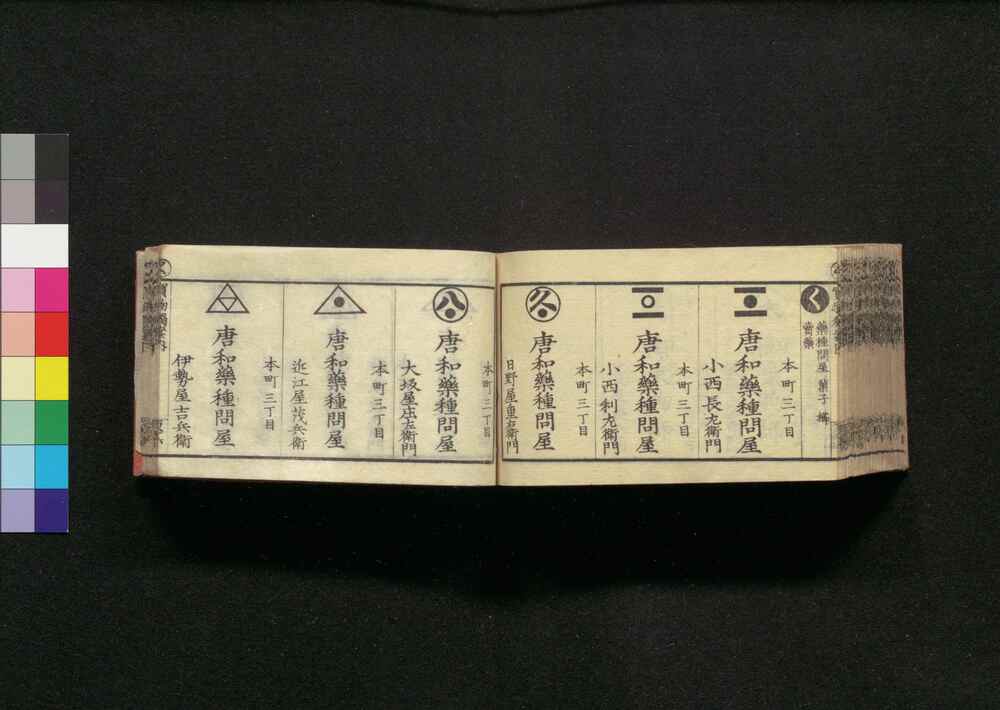 く
藥種問屋 菓子
本町三丁目
唐和藥種問屋
小西長左衛門
本町三丁目
唐和藥種問屋
小西利左衛門
本町三丁目
久
唐和藥種問屋
日野屋重右衛門
本町三丁目
八
唐和藥種問屋
大坂屋庄左衛門
本町三丁目
唐和藥種問屋
近江屋茂兵衛
本町三丁目
唐和藥種問屋
伊勢屋吉兵衛